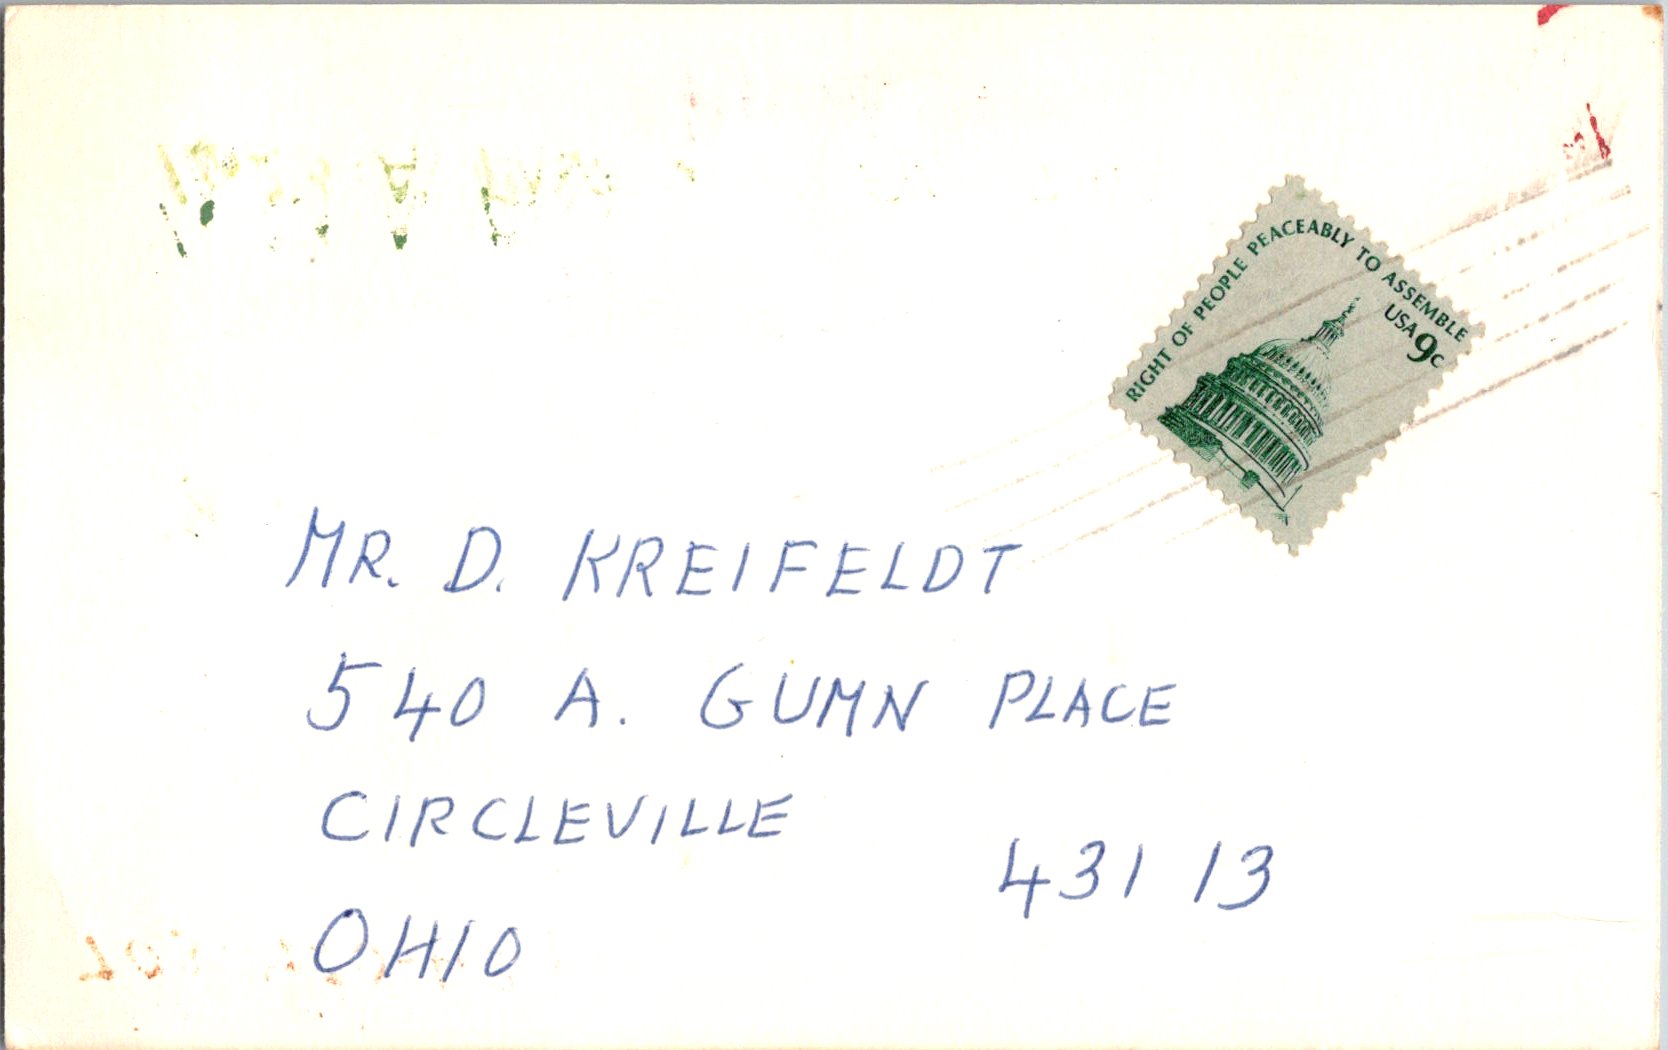 RIGHT OF PEOPLE PEACEABLY TO ASSEMBLE
USA 9c
MR. D. KREIFELDT
540 A. GUMN PLACE
CIRCLEVILLE
43113
OHIO